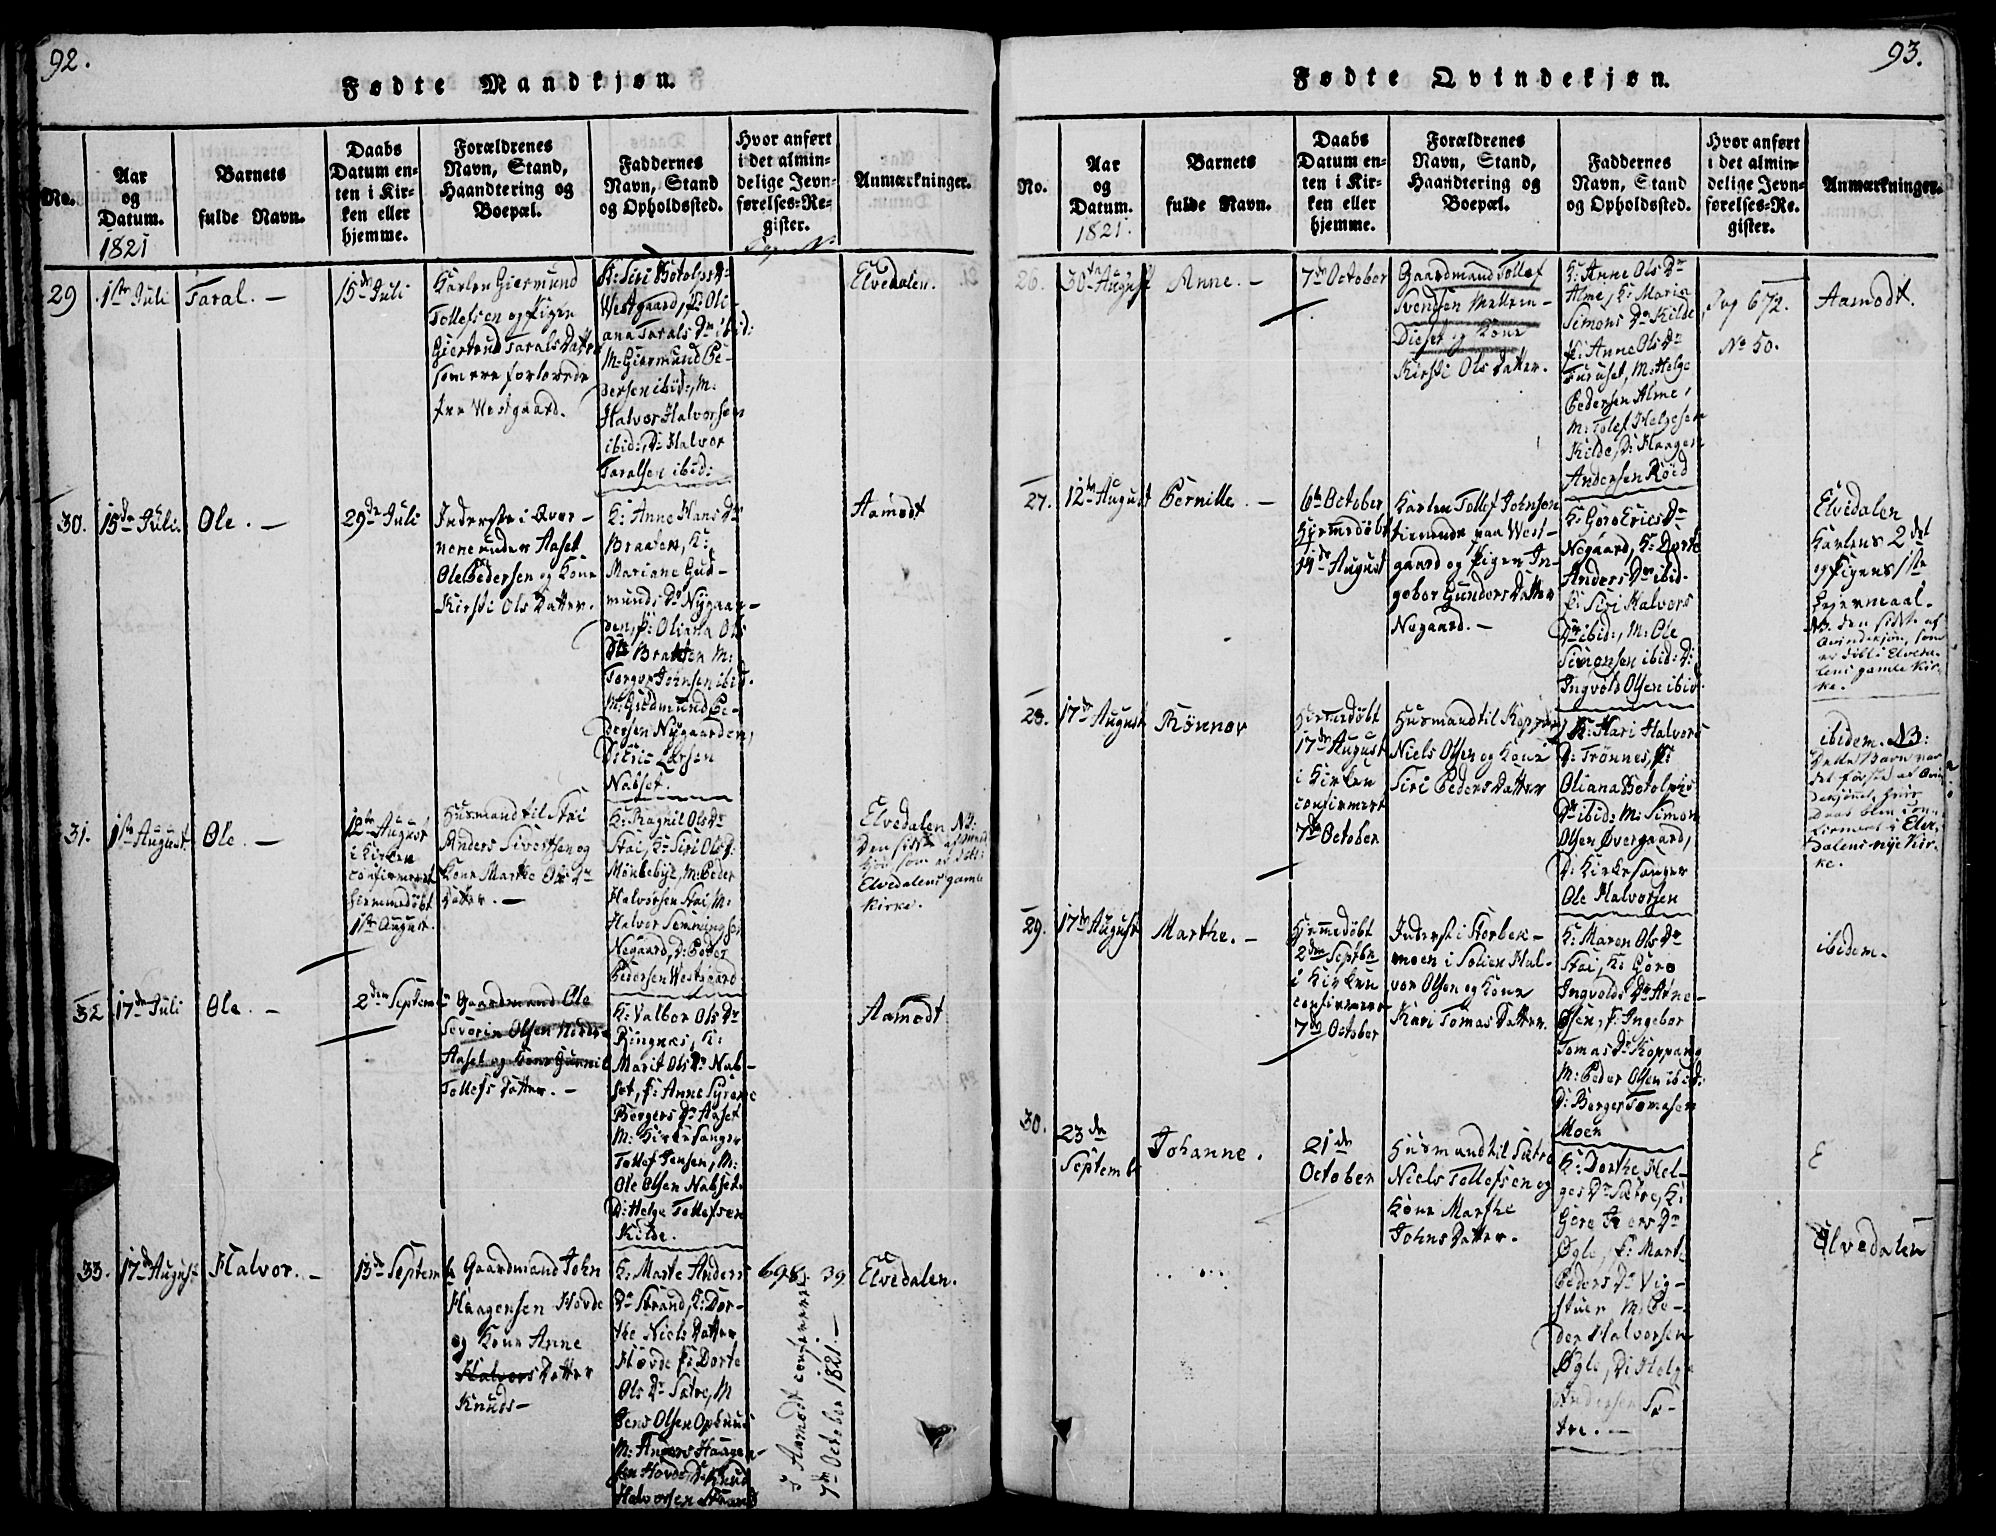 92.
Fødte Mandkjøn.
No.
Aar
og
Datum.
1821
Barnets
fulde Navn.
Daabs
Datum en-
ten i Kir-
ken eller
hjemme.
Forældrenes
Navn, Stand,
Haandtering og
Boepæl.
Faddernes
Navn, Stand
og Opholdssted.
Hvor anført
i det almin-
delige Jevn-
førelses-Re-
gister.
Anmærkninger.
29
1ste Juli
Taral. -
15de Juli
Karlen Giermund
Tollefsen og Pigen
Giertrud Tarals Datter
som ere forlovede
fra Westgaard.
K: Siri Botolps Dr
Westgaard, P: Oli-
ana Tarals Dr ibid:
M: Giermund Pe-
dersen ibid:, M:
Halvor Halvorsen
ibid:, D: Halvor
Taralsen ibid:
Elvedalen.
30.
15de Juli.
Ole. -
29de Juli
Inderste i Qver-
nene under Aaset
Ole Pedersen og Kone
Kirsti Ols Datter.
K: Anne Hans Dr
Braaten, K:
Mariane Gud-
munds Dr Nygaar-
den, P: Oliana Ols
Dr Braaten M:
Torger Johnsen ibid.
M: Gudmund Pe-
dersen Nygaarden,
Larsen
Nabset.
Aamodt
31.
1ste August
Ole. -
12te August
i Kirken
confirmeret
hjemmedøbt
1ste August.
Husmand til Stai
Anders Sivertsen og
Kone Marthe Ols Dr
Datter. -
K: Ragnil Ols Dr
Stai, K: Siri Ols D:
Monbebye, M: Peder
Halvorsen Stai, M:
Halvor Semmingsen
Negaard, D: Peder
Pedersen Westgaard
Elvedalen NB:
Den sidste af Mand
kjøn, som er døbt i
Elvedalens gamle
Kirke.
32
17de Juli
Ole. -
2den Septemb
Gaardmand Ole
Severin Olsen Nordre
Aaset og Kone Gunnil
Tollefs Datter. -
K: Valbor Ols Dr
Ringnæs, K:
Marit Ols Dr Nab-
set, P: Anne Syrene
Bergers Dr Aaset
M: Kirkesanger
Tollef Jensen, M:
Ole Olsen Nabset.
D: Helge Tollefsen
Kilde.
Aamodt
33.
17de August
Halvor. -
13de Septemb
Gaardmand John
Haagensen Hovde
og Kone Anne
Halvors Datter
Knuds-
K: Marte Anders
Dr Strand, K: Dor-
the Niels Datter
Hovde P: Dorte
Ols Dr Sætre, M
Jens Olsen Opsuus
M: Anders Haagen-
sen Hovde, D: Knud
Halvorsen Strand
698. 39.
i Aamodt confirmeret
7de October 1821. -
Elvedalen.
93.
Fødte Qvindekjøn.
No.
Aar
og
Datum.
1821.
Barnets
fulde Navn.
Daabs
Datum en-
ten i Kir-
ken eller
hjemme.
Forældrenes
Navn, Stand,
Haandtering og
Boepæl.
Faddernes
Navn, Stand
og Opholdssted.
Hvor anført
i det almin-
delige Jevn-
førelses-Re-
gister.
Anmærkninger.
26.
30te August
Anne. -
7de October
Gaardmand Tollef
Svendsen Mellem-
Dieset og Kone
Kirsti Ols Datter.
K: Anne Ols Dr
Alme, K: Maria
Simons Dr Kilde
P: Anne Ols Dr
Furuset, M: Helge
Pedersen Alme,
M: Tolef Helgesen
Kilde, D: Haagen
Andersen Röed
Pag 672.
No 50.
Aamodt.
27.
12te August
Pernille. -
6te October
Hjemmedøbt
14de August
Karlen Tollef Johnsen
tienende paa West-
gaard og Pigen In-
gebor Gunders Datter
Negaard. -
K: Goro Erics Dr
Negaard, K: Dorte
Anders Dr ibid.
P: Siri Halvors
Dr ibid:, M: Ole
Simonsen ibid: D:
Ingvold Olsen ibid.
Elvedalen
Karlens 2det
og Pigens 1ste
Leiermaal.
NB. den sidste af
Qvindekjøn, som
er døbt i Elveda-
lens gamle Kir-
ke.
28.
17de August
Rönnov
Hjemmedøbt
17de August
i Kirken
confirmert
7de October
Husmand til Koppang
Niels Olsen og Kone
Siri Peders Datter
K: Mari Halvors
D: Trönnes, P:
Oliana Botolphs
Dr ibid: M: Simon
Olsen Øvergaard,
D: Kirkesanger
Ole Halvorsen
ibidem. NB:
Dette Barn var
det første af Qvin
dekjønnet, hvis
Daab blev con-
firmert i Elve-
dalens nye Kir-
ke.
29.
17de August
Marthe. -
Hjemmedøbt
2den Septbr
i Kirken
confirmeret
7de October
Inderst i Storbek-
moen i Solien Hal-
vor Olsen og Kone
Kari Tomas Datter.
K: Maren Ols Dr
Stai, K: Goro
Ingvolds Dr Arne-
Øsen, P: Ingebor
Tomas Dr Koppang
M: Peder Olsen ibid:
D: Berger Tomasen
Moen
ibidem.
30.
23de
Septembr
Johanne.
21de
October
Husmand til Sætre
Niels Tollefsen og
Kone Marthe
Johns Datter.
K: Dorthe Hel-
ges Dr Sætre, K:
Gore Ivers Dr
Øgle, P: Marte
Peders Dr Vig-
stuen M: Pe-
der Halvorsen
Øgle, D: Helge
Andersen Sæ-
tre. -
E
Elvedalen